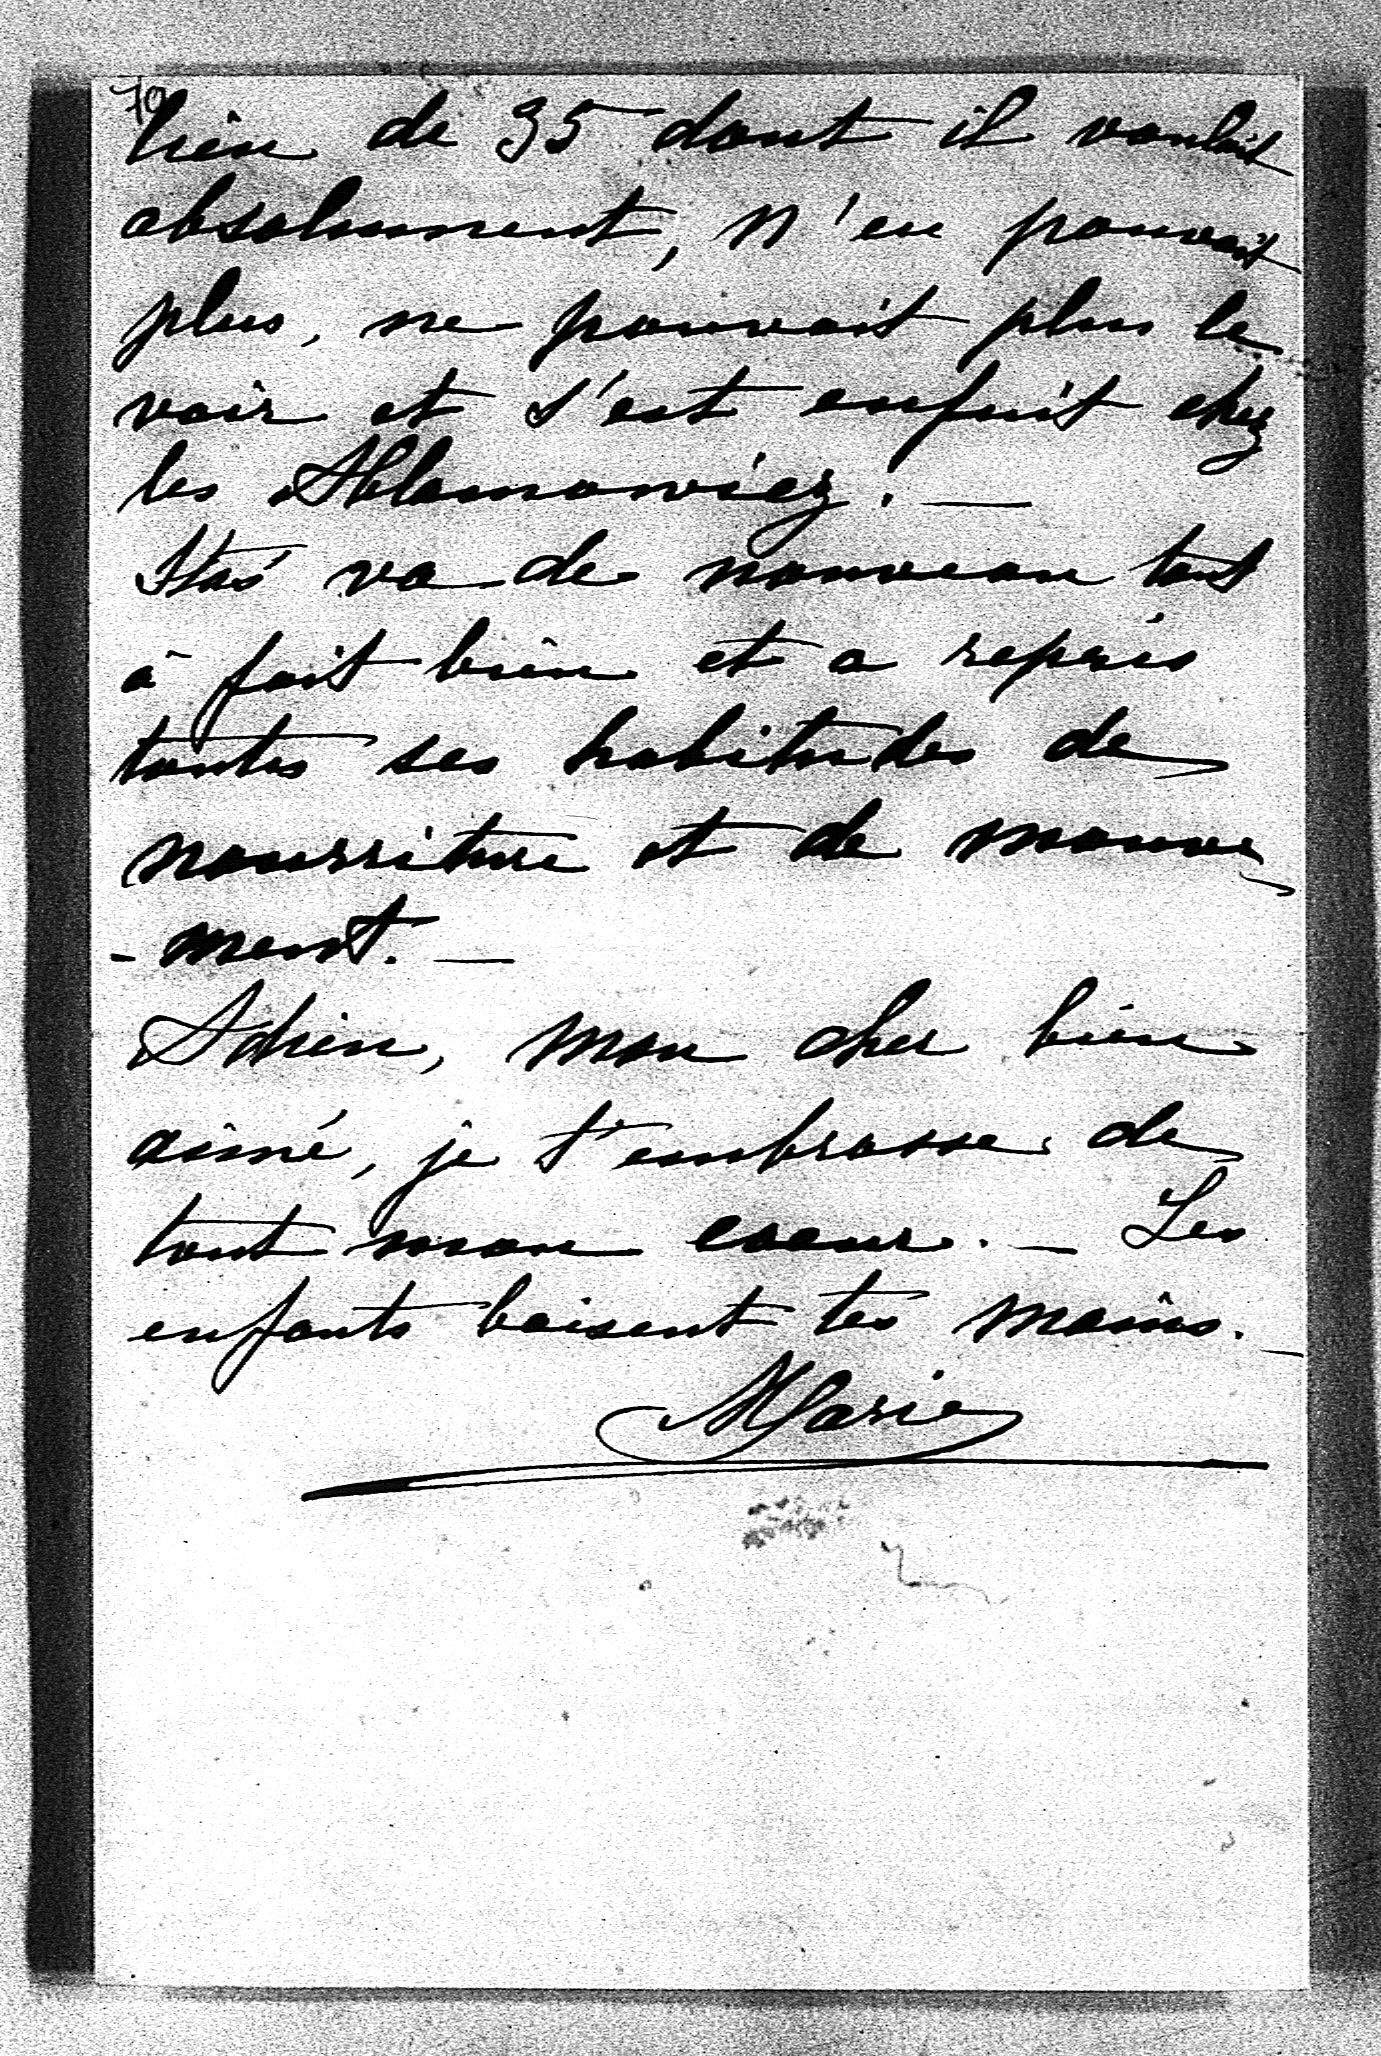 70
lieu de 35 dont il voulait
absolument, n'en pouvait
plus, ne pouvait plus le
voir et s'est enfuit chez
les Ablamowicz. —
Staś va de nouveau tout
à fait bien et a repris
toutes ses habitudes de
nourriture et de mouve
- ment. —
Adieu, mon cher bien
aimé, je t'embrasse de
tout mon coeur. — Les
enfants baisent tes mains. —
Marie